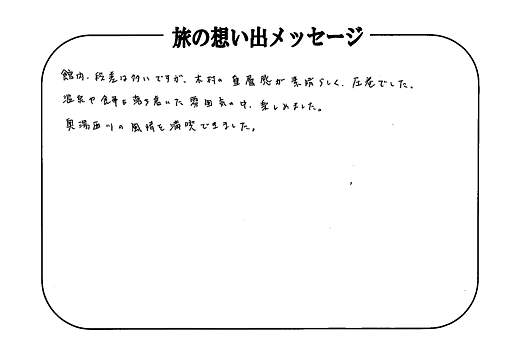 旅の想い出メッセージ
館内、段差は多いですが、木材の重層感が素晴らしく、圧巻でした。
温泉や食事も落ち着いた雰囲気の中、楽しめました。
奥湯西川の風情を満喫できました。